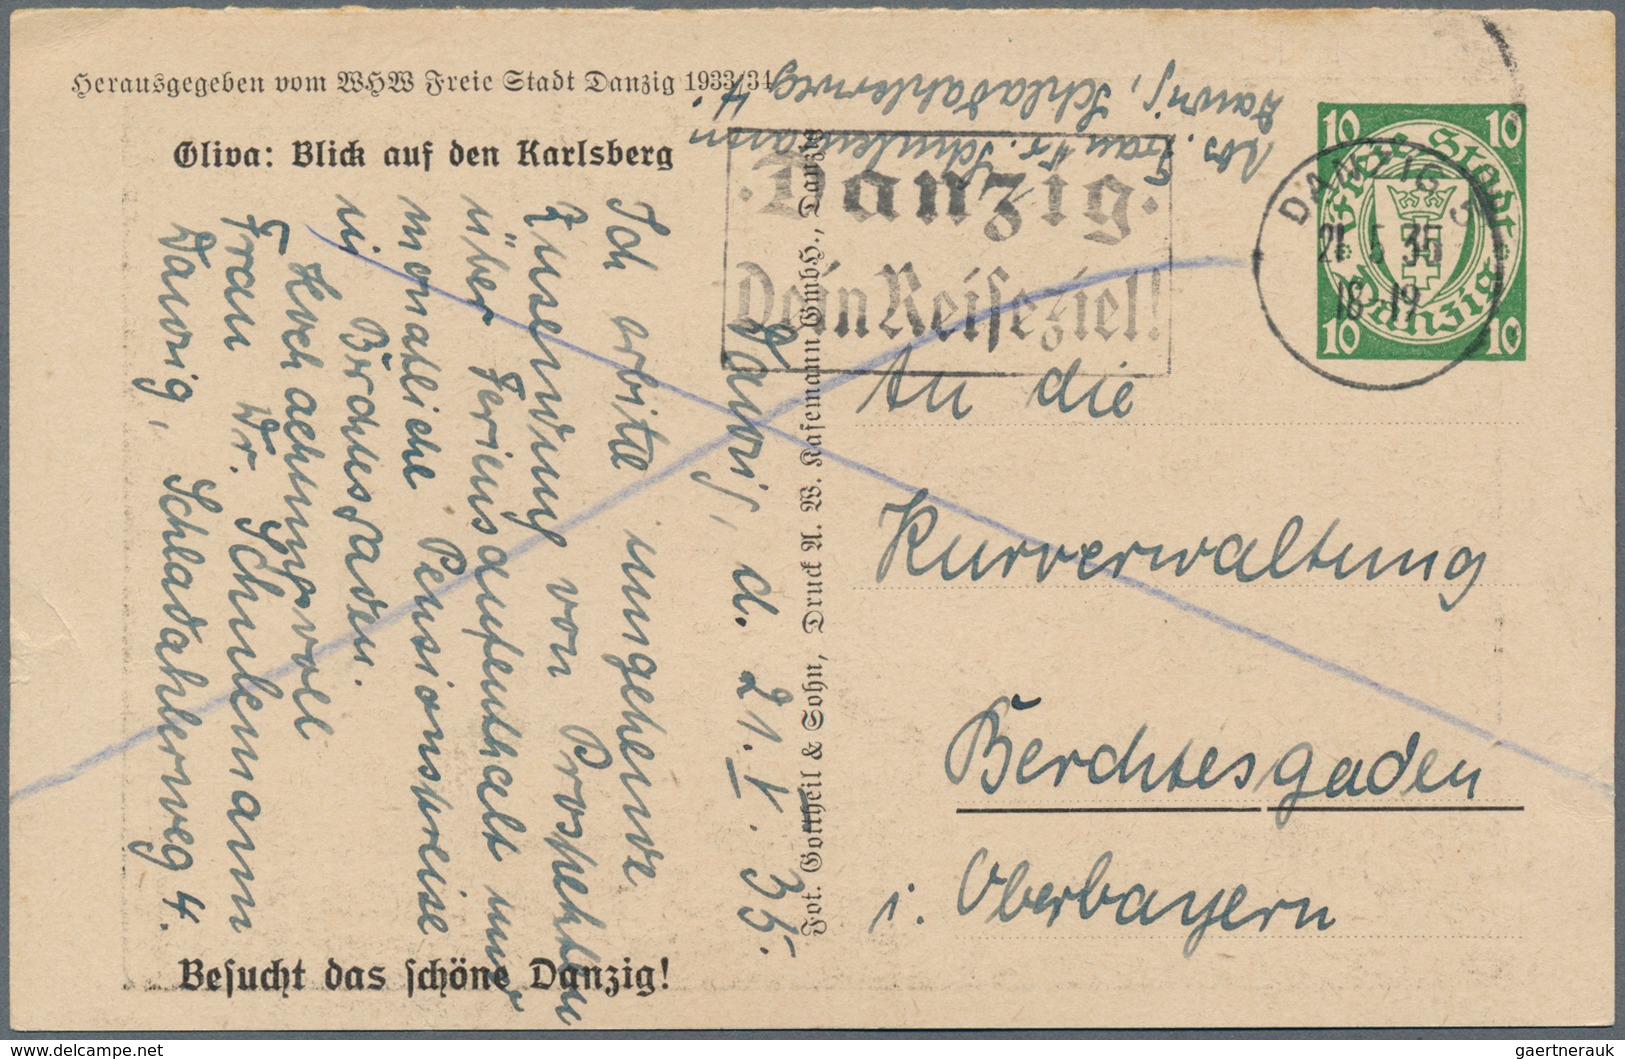 Herausgegeben vom WHW Freie Stadt Danzig 1933/34
Oliva: Blick auf den Karlsberg
Abs. Frau Dr. Schulemann
Danzig, Schladahlerweg 4.
Danzig, d. 21. V. 35.
Ich erbitte umgehende
Zusendung von Prospekten
über Ferienaufenthalt und
monatliche Pensionspreise
in Berchtesgaden.
Hochachtungsvoll
Frau Dr. Schulemann
Danzig, Schladahlerweg 4.
Besucht das schöne Danzig!
Fot. Gottheil & Sohn, Druck A. W. Kafemann GmbH., Danzig
·Danzig·
Dein Reiseziel!
DANZIG 5
21 5 35
18-19
10 10
Freie Stadt
Danzig
10 10
An die
Kurverwaltung
Berchtesgaden
i. Oberbayern
delcampe.net
gaertnerauk